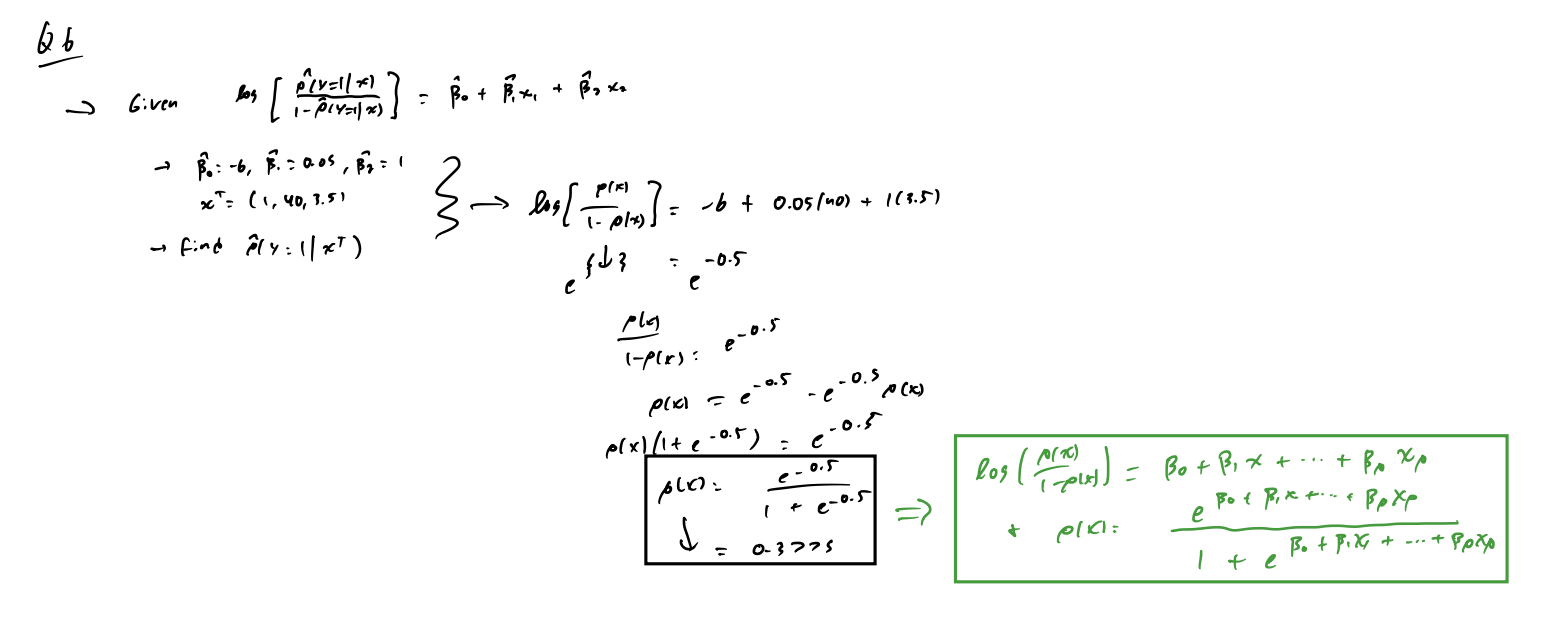 Q6
→ Given log [ p̂(Y=1|x) / 1 - p̂(Y=1|x) ] = β̂₀ + β̂₁x₁ + β̂₂x₂
→ β̂₀ = -6, β̂₁ = 0.05, β̂₂ = 1
xᵀ = (1, 40, 3.5)
→ find p̂(Y=1|xᵀ)
→ log [ p(x) / 1 - p(x) ] = -6 + 0.05(40) + 1(3.5)
e^{↓} = e^-0.5
p(x) / 1-p(x) = e^-0.5
p(x) = e^-0.5 - e^-0.5 p(x)
p(x)(1 + e^-0.5) = e^-0.5
p(x) = e^-0.5 / 1 + e^-0.5
↓ = 0.3775
⇒ log ( p(x) / 1-p(x) ) = β₀ + β₁x + ... + βₚxₚ
+ p(x) = e^β₀ + β₁x + ... + βₚxₚ / 1 + e^β₀ + β₁x₁ + ... + βₚxₚ